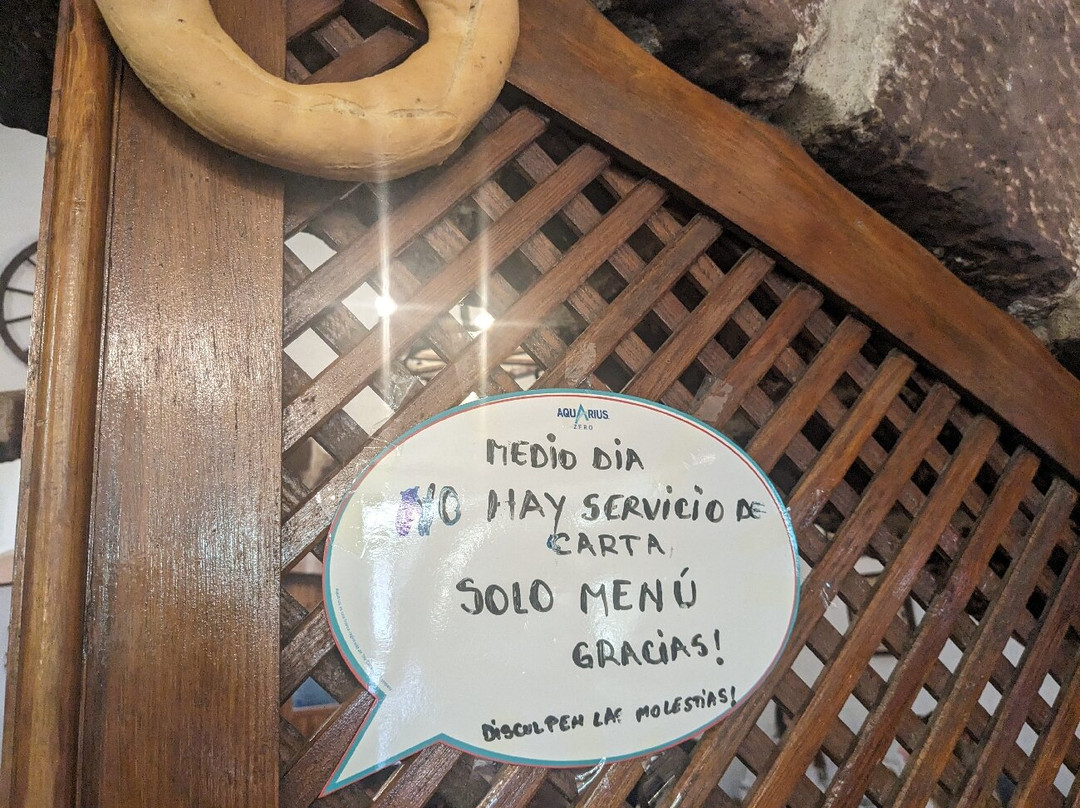 AQUARIUS
ZERO
MEDIO DIA
NO HAY SERVICIO DE
CARTA
SOLO MENÚ
GRACIAS!
DISCULPEN LAS MOLESTIAS!